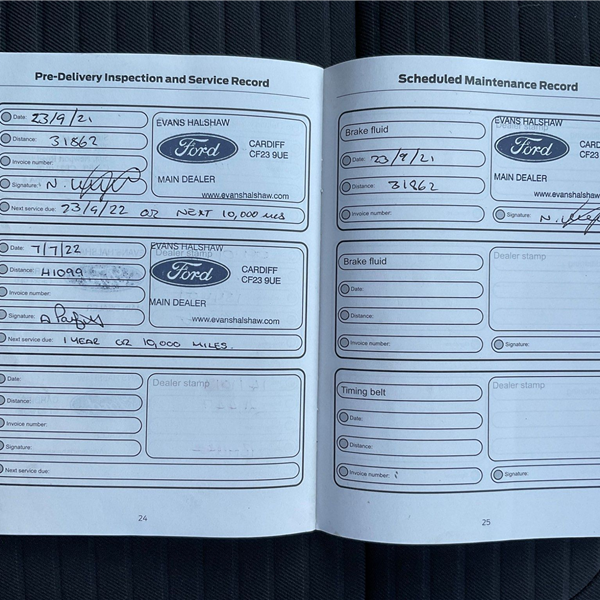 Pre-Delivery Inspection and Service Record
Date: 23/9/21
Distance: 31862
Invoice number:
Signature: N.
EVANS HALSHAW
Ford
CARDIFF
CF23 9UE
MAIN DEALER
www.evanshalshaw.com
Next service due: 23/9/22 OR NEXT 10,000 MLS
Date: 7/7/22
Distance: 41099
Invoice number:
Signature: A
EVANS HALSHAW
Dealer stamp
Ford
CARDIFF
CF23 9UE
MAIN DEALER
www.evanshalshaw.com
Next service due: 1 YEAR OR 10,000 MILES.
Date:
Distance:
Invoice number:
Signature:
Dealer stamp
Next service due:
24
Scheduled Maintenance Record
Brake fluid
Date: 23/9/21
Distance: 31862
Invoice number:
EVANS HALSHAW
Dealer stamp
Ford
CARD
CF23
MAIN DEALER
www.evanshalshaw.co
Signature: N.
Brake fluid
Date:
Distance:
Invoice number:
Dealer stamp
Signature:
Timing belt
Date:
Distance:
Invoice number:
Dealer stamp
Signature:
25